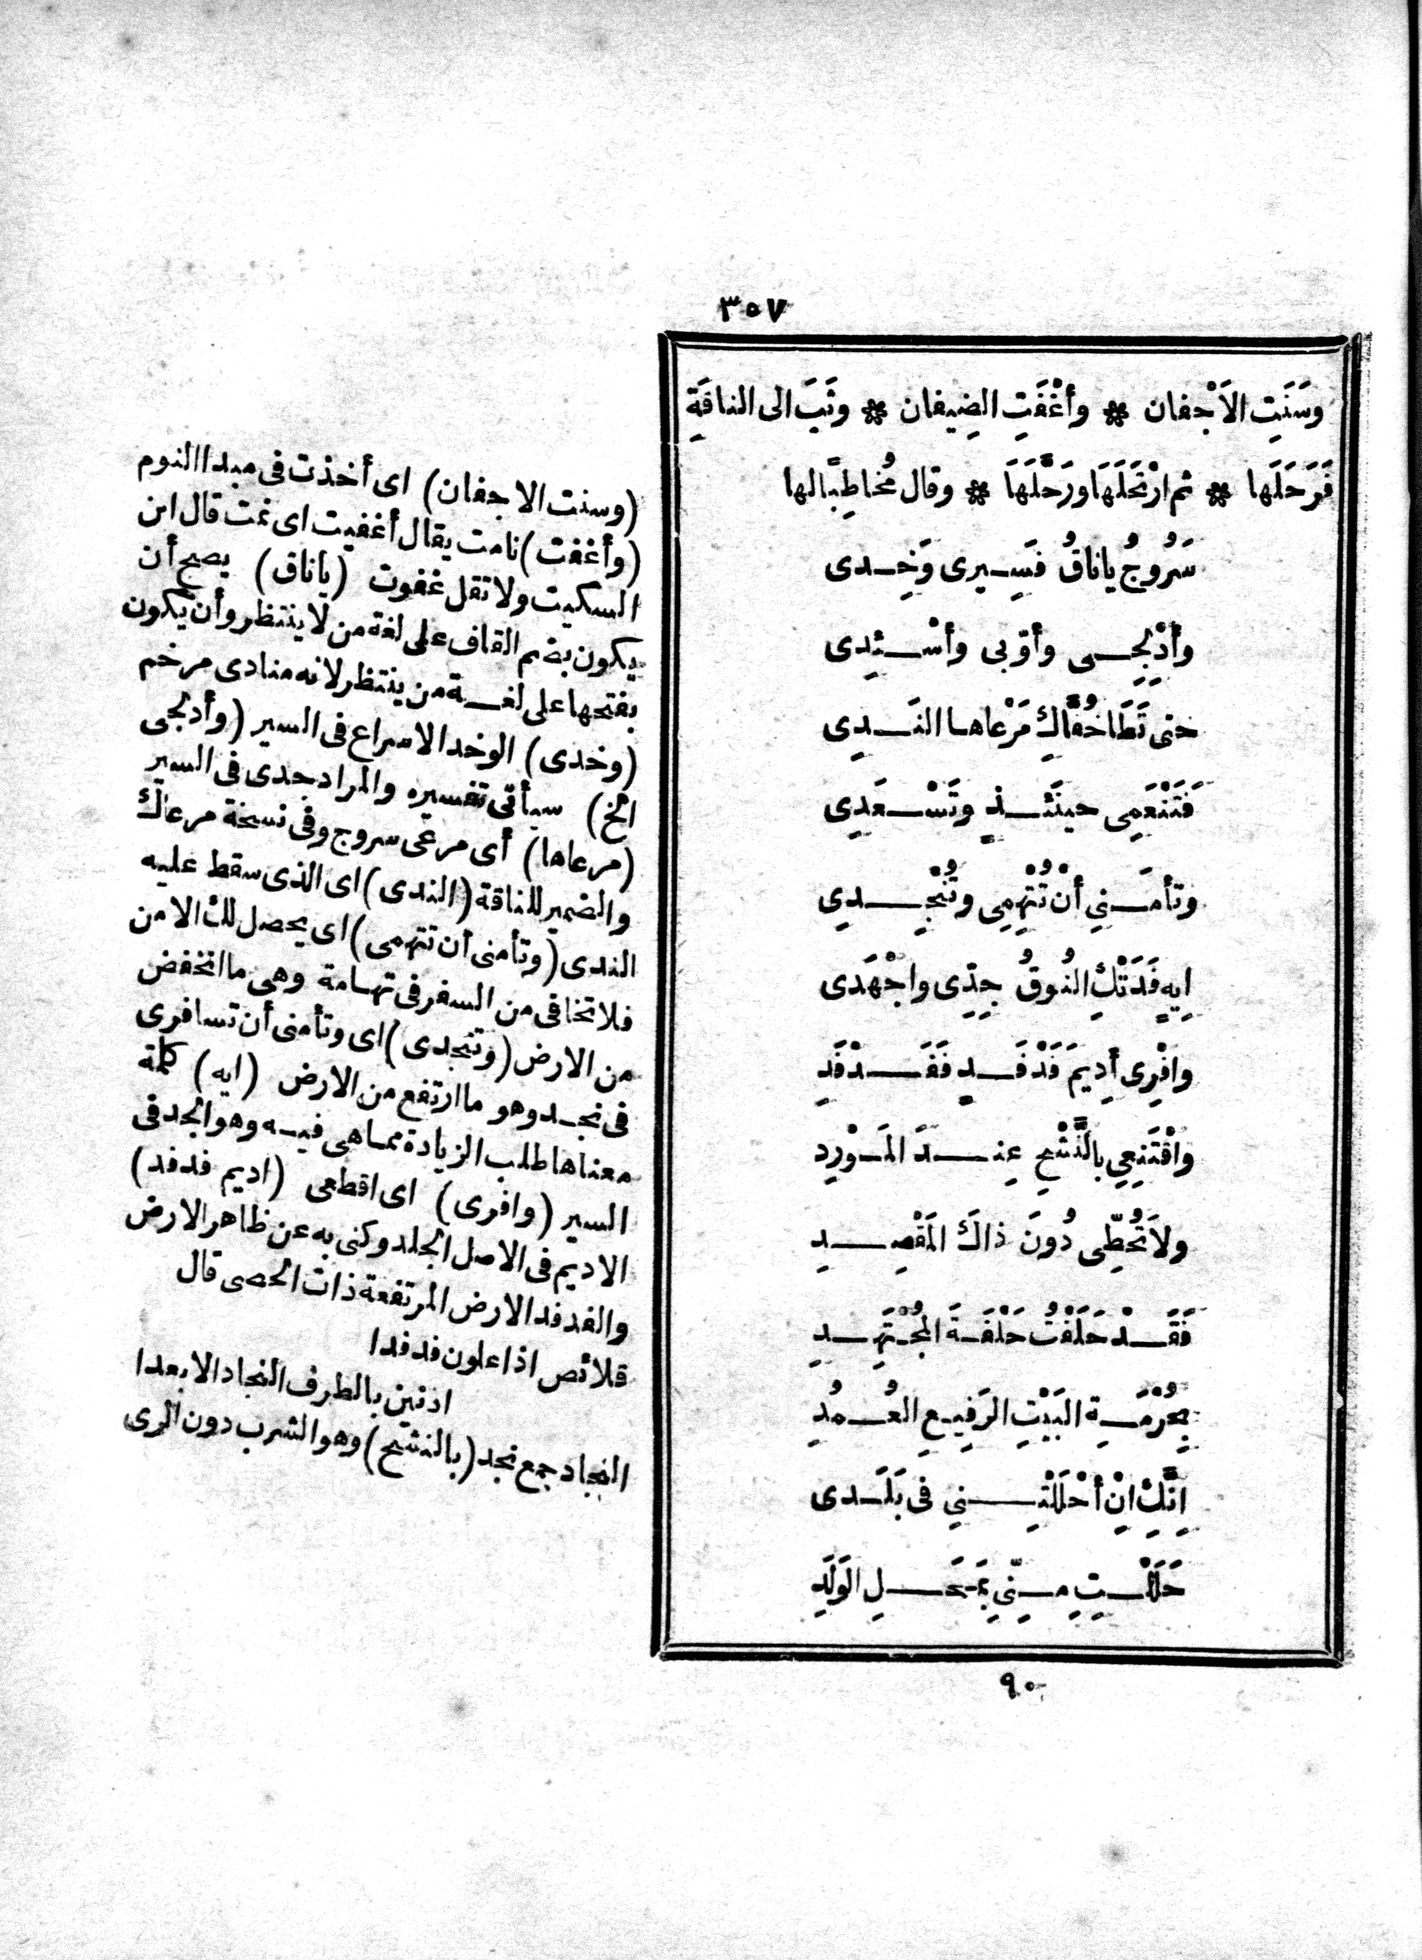 ٣٥٧
وسَنَتِ الاَجْفان ❋ وأغْفَتِ الضِيفان ❋ وثَبَ الى الناقَةِ
فَرَحَلَها ❋ ثم ارْتَحَلَهَا ورَحَّلَهَا ❋ وقال مُخاطِبًا لها
سَرُوجُ ياناقُ فَسِيرى وَخِدى
وأدْلِجِى وأوّبى وأسْئِدِى
حتى تَطَا خُفَّاكِ مَرْعاها النَدِى
فَتَنْعَمِى حينَئذٍ وتَسْعَدِى
وتأمَنِي أنْ تُتْهِمِى وتُنْجِدِى
اِيهٍ فَدَتْكِ النُوقُ جِدِّى واجْهَدَى
وافْرِى أدِيمَ فَدْفَدٍ فَفَدْفَدِ
واقْتَنِعِي بالنَّشْحِ عِندَ المَوْرِدِ
ولاَ تَحُطِّى دُونَ ذاكَ المَقْصِدِ
فَقَدْ حَلَفْتُ حَلْفَةَ المُجْتَهِدِ
بِحُرْمَةِ البَيْتِ الرَفِيعِ العُمُدِ
اِنَّكِ اِنْ أحْلَلْتِنِي فى بَلَدى
حَلَلْتِ مِنِّي بمَحَلِ الوَلَدِ
٩٠
(وسنت الاجفان) اى أخذت فى مبدا النوم
(وأغفت) نامت يقال أغفيت اى نمت قال ابن
السكيت ولا تقل غفوت (ياناق) يصح أن
يكون بضم القاف على لغة من لا ينتظر وأن يكون
بفتحها على لغة من ينتظر لانه منادى مرخم
(وخدى) الوخد الاسراع فى السير (وأدلجى
الخ) سيأتى تفسيره والمراد جدى فى السير
(مرعاها) أى مرعى سروج وفى نسخة مرعاك
والضمير للناقة (الندى) اى الذى سقط عليه
الندى (وتأمنى أن تتهمى) اى يحصل لك الامن
فلا تخافى من السفر فى تهامة وهى ما انخفض
من الارض (وتنجدى) اى وتأمنى أن تسافرى
فى نجد وهو ما ارتفع من الارض (ايه) كلمة
معناها طلب الزيادة مما هى فيه وهو الجد فى
السير (وافرى) اى اقطعى (اديم فدفد)
الاديم فى الاصل الجلد وكنى به عن ظاهر الارض
والفدفد الارض المرتفعة ذات الحصى قال
قلائص اذا علون فدفدا
ادنين بالطرف النجاد الابعدا
النجاد جمع نجد (بالنشح) وهو الشرب دون الرى